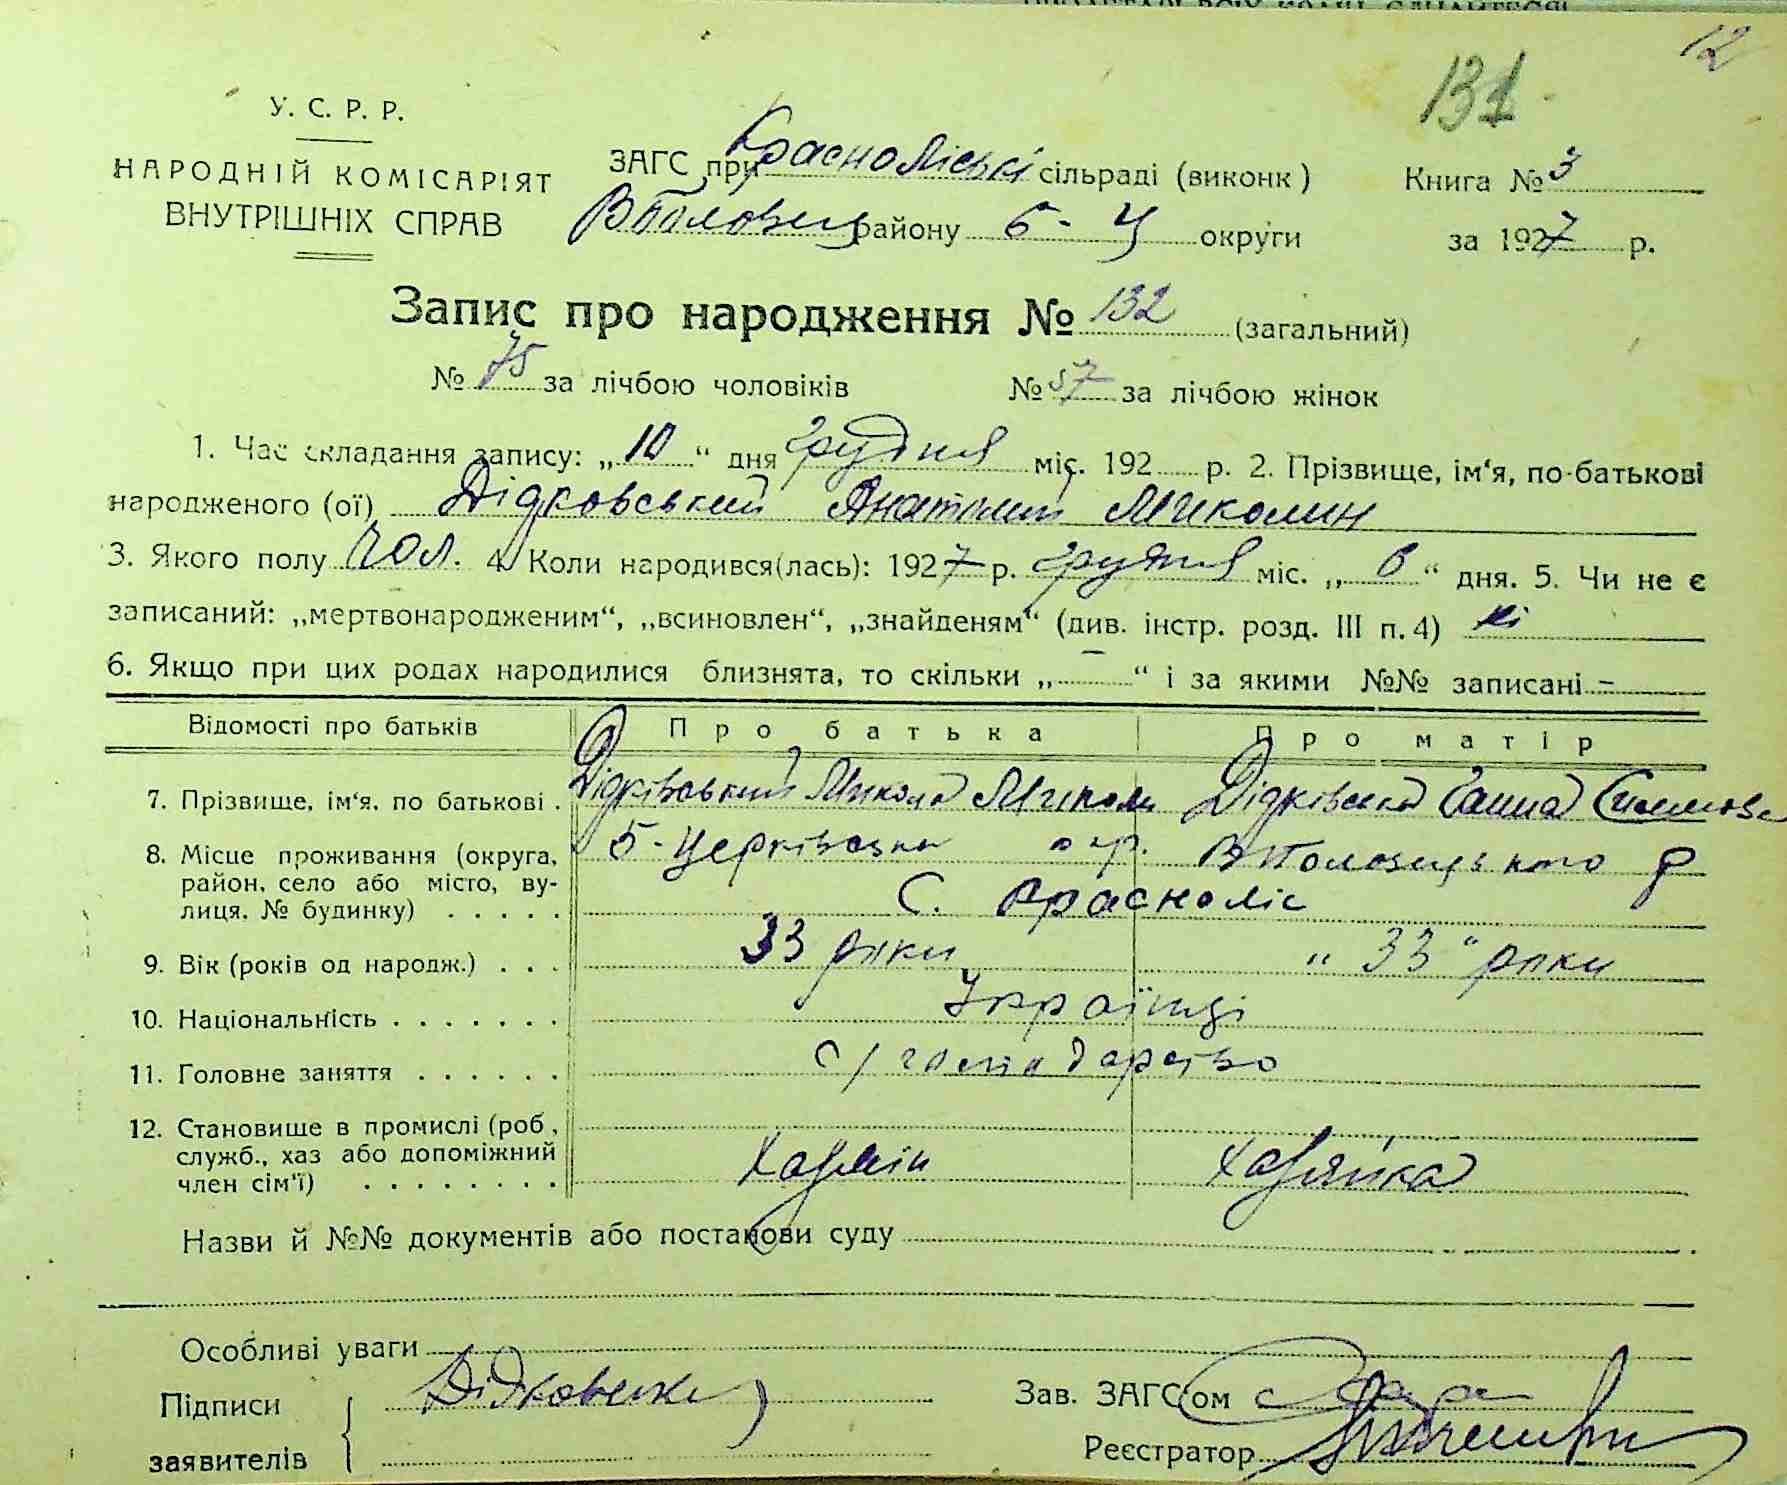 12
131
У. С. Р. Р.
НАРОДНІЙ КОМІСАРІЯТ
ВНУТРІШНІХ СПРАВ
ЗАГС при Красноліські сільраді (виконк)
ВПоловец району Б-Ц округи
Книга № 3
за 1927 р.
Запис про народження № 132 (загальний)
№ 75 за лічбою чоловіків № 57 за лічбою жінок
1. Час складання запису: „10“ дня грудня міс. 192 р. 2. Прізвище, ім‘я, по-батькові
народженого (ої) Дідковський Анатолий Миколин
3. Якого полу чол. 4. Коли народився(лась): 1927 р. грудня міс. „6“ дня. 5. Чи не є
записаний: „мертвонародженим“, „всиновлен“, „знайденям“ (див. інстр. розд. III п. 4) ні
6. Якщо при цих родах народилися близнята, то скільки „—“ і за якими №№ записані –
Відомості про батьків Про батька Про матір
7. Прізвище, ім‘я, по батькові . Дідківський Микола Миколи Дідківська Ганна
8. Місце проживання (округа, район, село або місто, ву-
лиця, № будинку) . . . . . Б-Церківська окр. ВПоловецького р
С. Красноліс
9. Вік (років од народж.) . . . 33 роки „33“ роки
10. Національність . . . . . . . Українці
11. Головне заняття . . . . . . с/господарство
12. Становище в промислі (роб.,
служб., хаз або допоміжний
член сім‘ї) . . . . . . . . Хазяїн Хазяйка
Назви й №№ документів або постанови суду
Особливі уваги
Підписи
заявителів
Дідковски
Зав. ЗАГС‘ом
Реєстратор